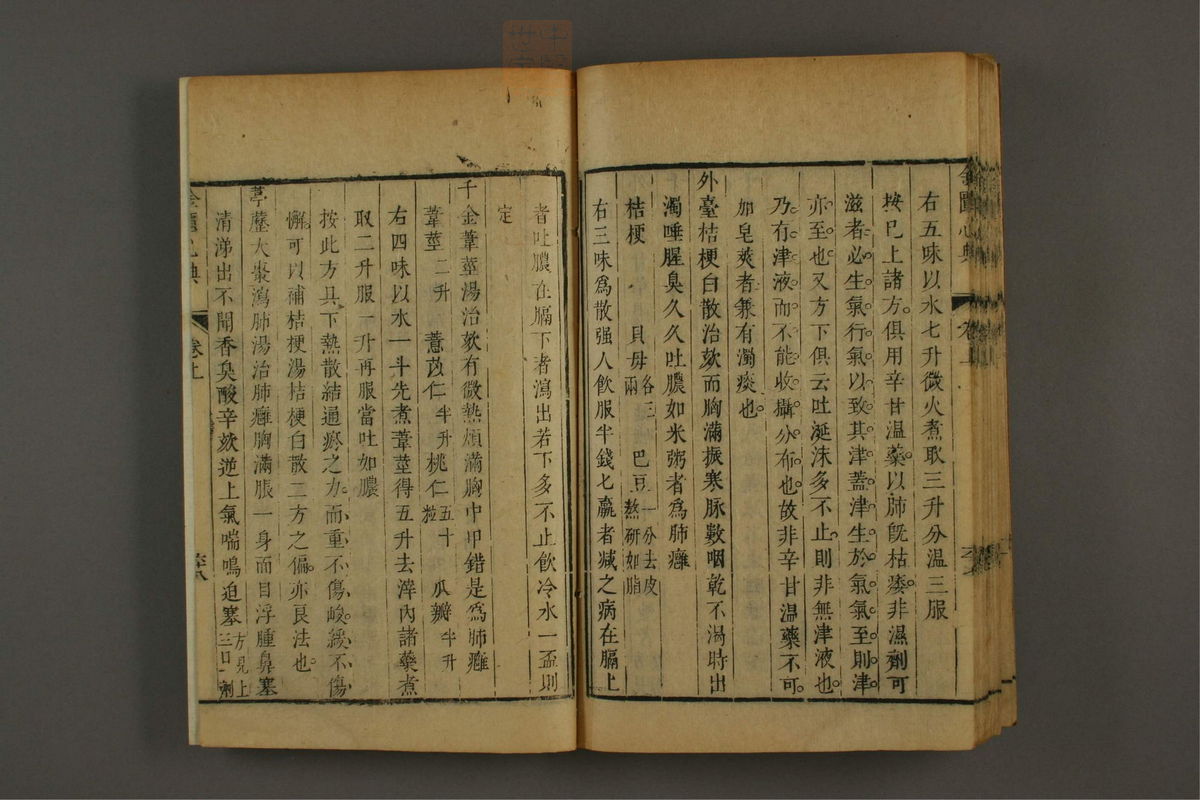 金匱心典
卷上
右五味以水七升微火煮取三升分溫三服
按已上諸方俱用辛甘溫藥以肺旣枯痿非濕劑可
滋者必生氣行氣以致其津蓋津生於氣氣至則津
亦至也又方下俱云吐涎沫多不止則非無津液也
乃有津液而不能收攝分布也故非辛甘溫藥不可
加皂莢者兼有濁痰也
外臺桔梗白散治欬而胸滿振寒脉數咽乾不渴時出
濁唾腥臭久久吐膿如米粥者爲肺癰
桔梗 貝母各三兩 巴豆一分去皮熬研如脂
右三味爲散强人飲服半錢匕羸者減之病在膈上
者吐膿在膈下者瀉出若下多不止飲冷水一盃則
定
千金葦莖湯治欬有微熱煩滿胸中甲錯是爲肺癰
葦莖二升 薏苡仁半升 桃仁五十粒 瓜瓣半升
右四味以水一斗先煮葦莖得五升去滓內諸藥煮
取二升服一升再服當吐如膿
按此方具下熱散結通瘀之力而重不傷峻緩不傷
懈可以補桔梗湯桔梗白散二方之偏亦良法也
葶藶大棗瀉肺湯治肺癰胸滿脹一身面目浮腫鼻塞
清涕出不聞香臭酸辛欬逆上氣喘鳴迫塞方見上三日一劑
卷上